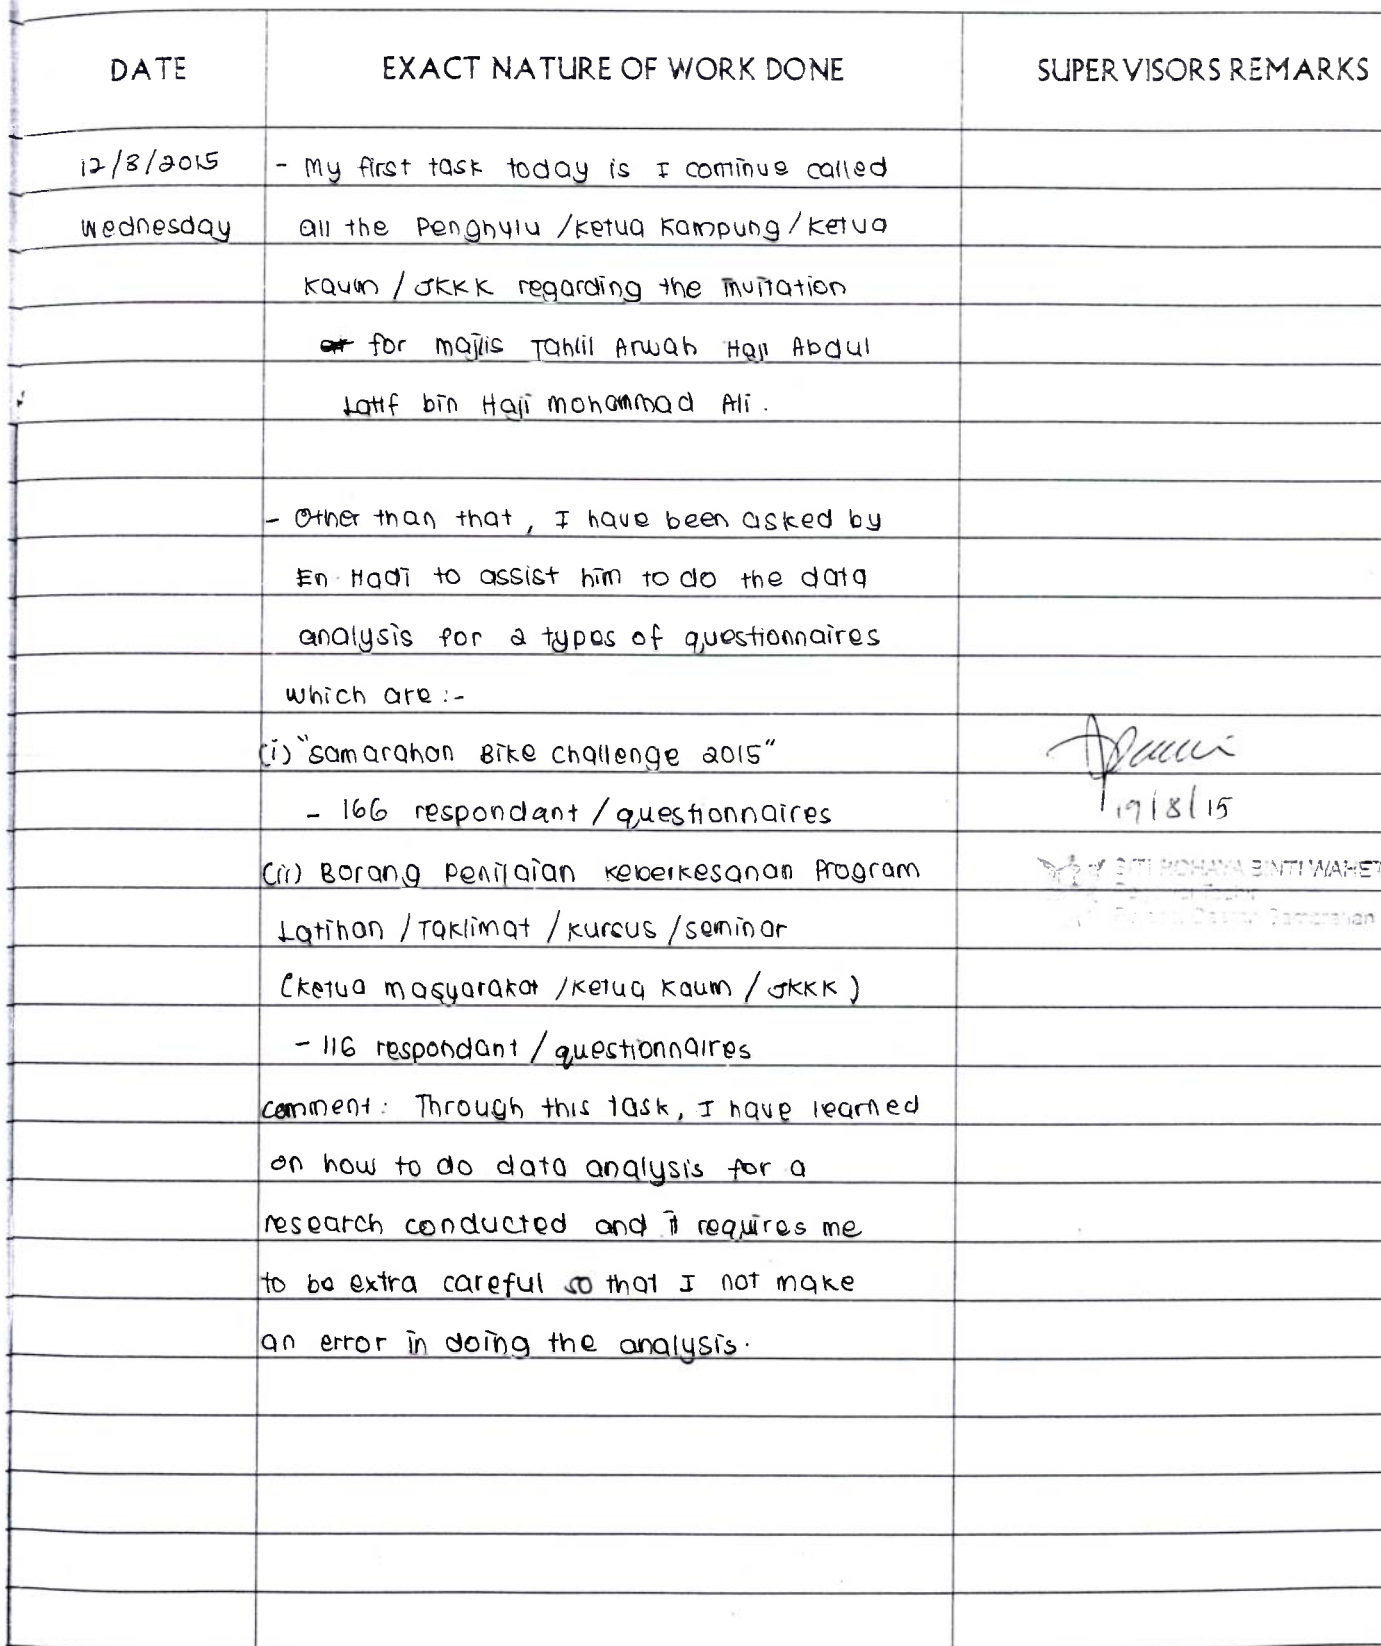 DATE EXACT NATURE OF WORK DONE SUPERVISORS REMARKS
12/8/2015 - My first task today is I continue called
Wednesday all the Penghulu / Ketua Kampung / Ketua
Kaum / JKKK regarding the invitation
for Majlis Tahlil Arwah Haji Abdul
Latif bin Haji Mohammad Ali.
- Other than that, I have been asked by
En. Hadi to assist him to do the data
analysis for 2 types of questionnaires
which are :-
(i) "Samarahan Bike Challenge 2015"
- 166 respondant / questionnaires
19/8/15
(ii) Borang Penilaian Keberkesanan Program
SITI ROHAYA BINTI WAHET
Latihan / Taklimat / Kursus / Seminar
Samarahan
(Ketua masyarakat / Ketua Kaum / JKKK)
- 116 respondant / questionnaires
comment: Through this task, I have learned
on how to do data analysis for a
research conducted and it requires me
to be extra careful so that I not make
an error in doing the analysis.